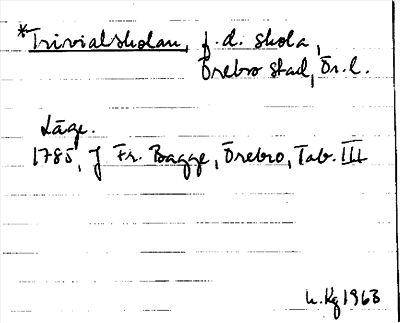 *Trivialskolan, f.d. skola,
Örebro stad, Ör.l.
Läge.
1785, J Fr. Bagge, Örebro, Tab. III
h. Kg 1963